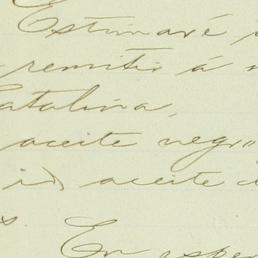 Estimaré
remitir á
Catalina,
aceite negro
id aceite
En espe